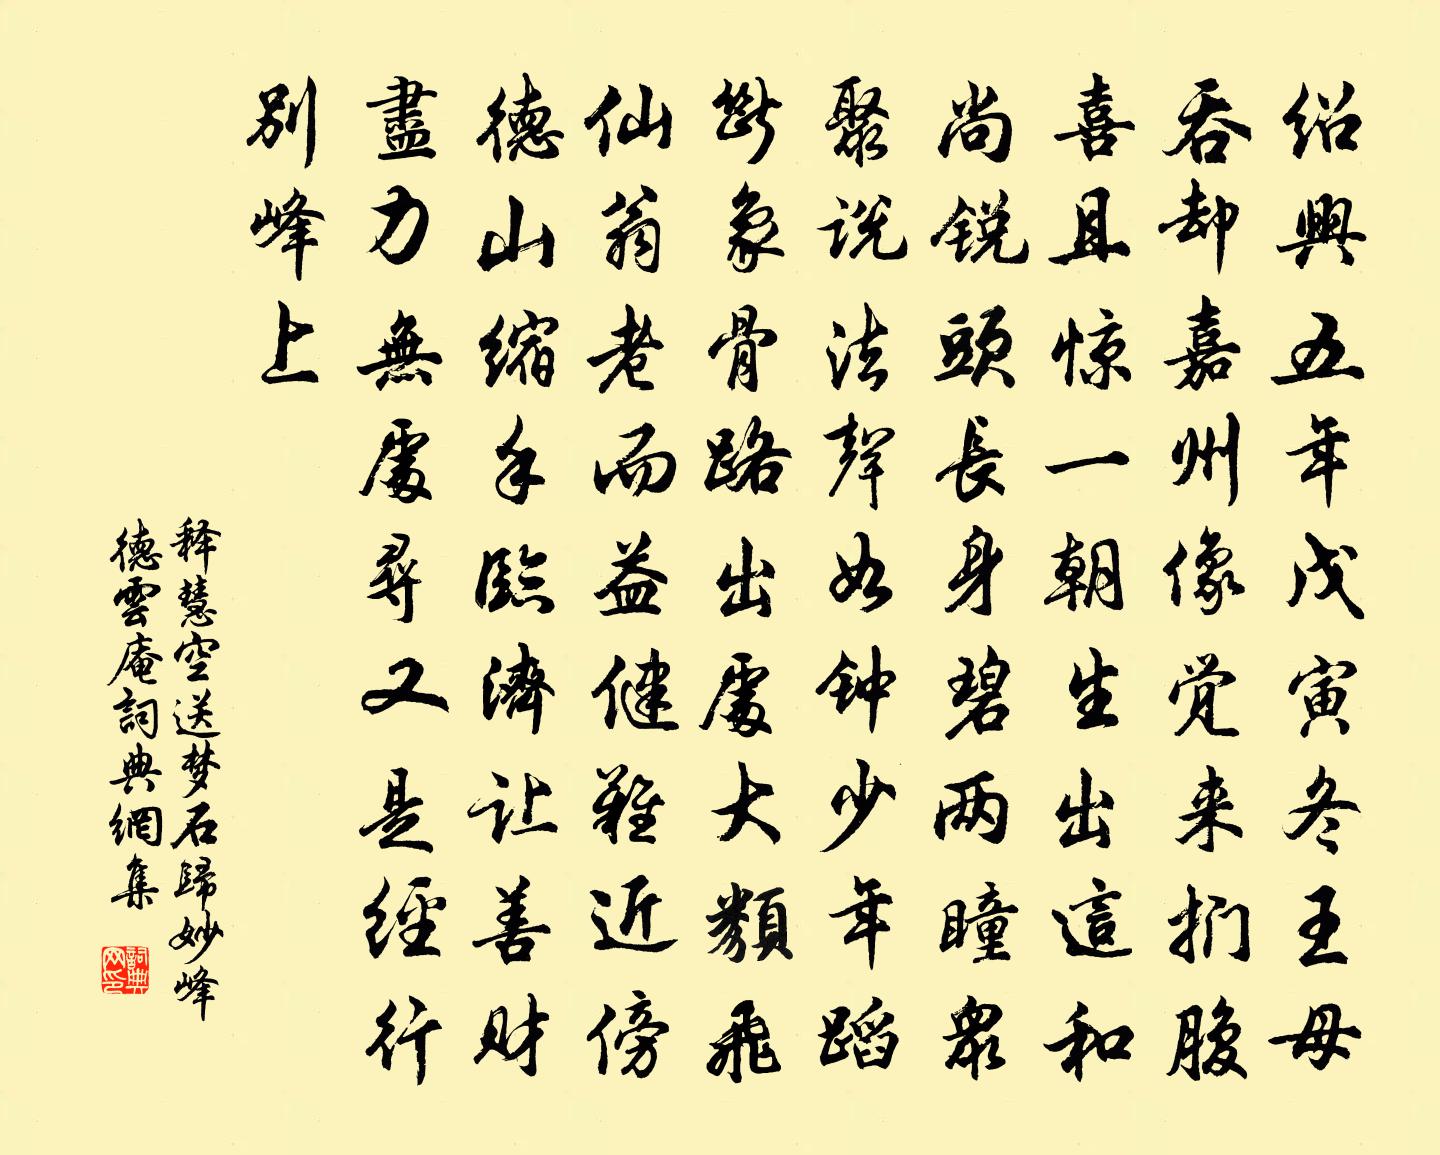 绍興五年戊寅冬王母
吞却嘉州像觉来扪腹
喜且惊一朝生出這和
尚锐頭長身碧两瞳眾
聚说法聲如钟少年蹈
斷象骨路出處大類飛
仙翁老而益健難近傍
德山缩手臨濟让善财
盡力無處尋又是經行
别峰上
释慧空送梦石歸妙峰
德雲庵詞典網集
詞典
网印